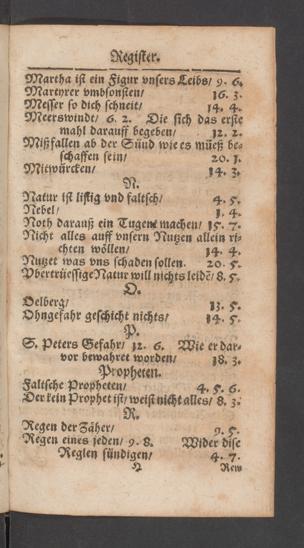 Register.
Martha ist ein Figur vnsers Leibs/ 9. 6.
Martyrer vmbsonsten/ 16. 3.
Messer so dich schneit/ 14. 4.
Meerswindt/ 6. 2. Die sich das erste
mahl darauff begeben/ 12. 2.
Mißfallen ab der Sünd wie es müeß be-
schaffen sein/ 20. 1.
Mitwürcken/ 14. 3.
N.
Natur ist listig vnd faltsch/ 4. 5.
Nebel/ 1. 4.
Noth darauß ein Tugent machen/ 15. 7.
Nicht alles auff vnsern Nutzen allein ri-
chten wöllen/ 14. 4.
Nutzet was vns schaden sollen. 20. 5.
Vbertrüessige Natur will nichts leidē/ 8. 5.
O.
Oelberg/ 13. 5.
Ohngefahr geschicht nichts/ 14. 5.
P.
S. Peters Gefahr/ 12. 6. Wie er dar-
vor bewahret worden/ 18. 3.
Propheten.
Faltsche Propheten/ 4. 5. 6.
Der kein Prophet ist/ weist nicht alles/ 8. 3.
R.
Regen der Zäher/ 9. 5.
Regen eines jeden/ 9. 8. Wider dise
Reglen sündigen/ 4. 7.
Rew